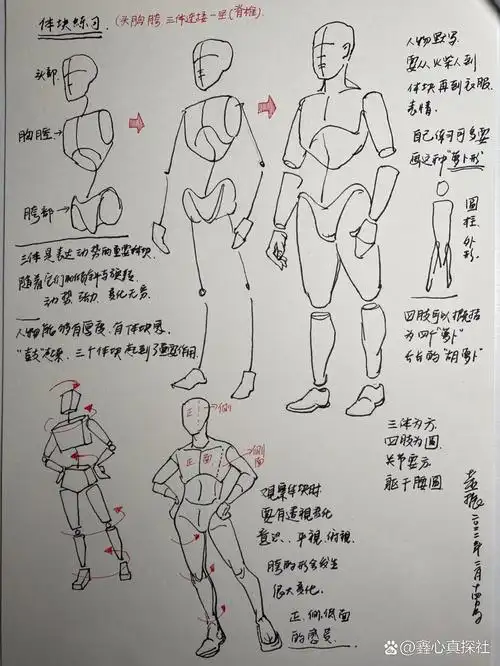 体块练习.
(头胸胯 三体连接一竖(脊椎).
头部.
胸腔→
胯部→
三体是表达动势的重要体块
随着它们的倾斜与旋转
动势、张力、变化无穷.
人物能够有厚度、有体块感
"鼓"起来, 三个体块起到了重要作用.
人物默写
要从火柴人到
体块再到衣服
表情.
自己练习可多要
画这种"萝卜形"
圆柱外形.
四肢可以概括
为四个"萝卜"
长长的"胡萝卜"
三体为方.
四肢为圆.
关节要方
躯干腰圆.
正
侧
正面
侧面
观察体块时
要有透视变化
意识、平视、俯视.
胯的形会发生
很大变化.
正、侧、底面
的意员.
二〇二二年二月十四
@鑫心真探社